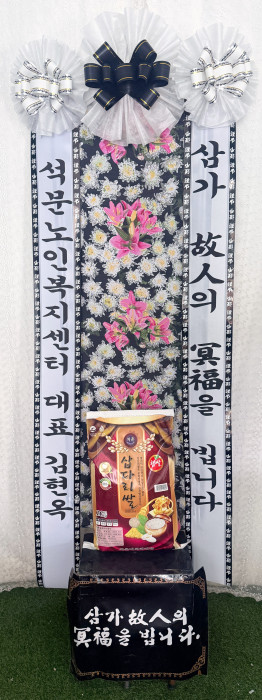 삼가 故人의 冥福을 빕니다
석문노인복지센터 대표 김현옥
삼다리쌀
삼가 故人의
冥福을 빕니다.